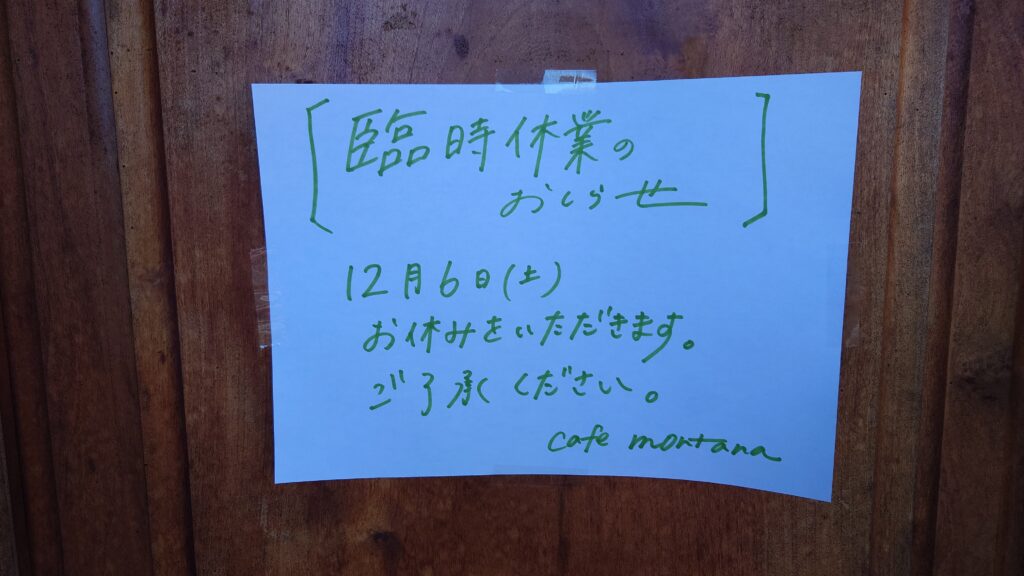 [臨時休業の
おしらせ]
12月6日(土)
お休みをいただきます。
ご了承ください。
cafe montana